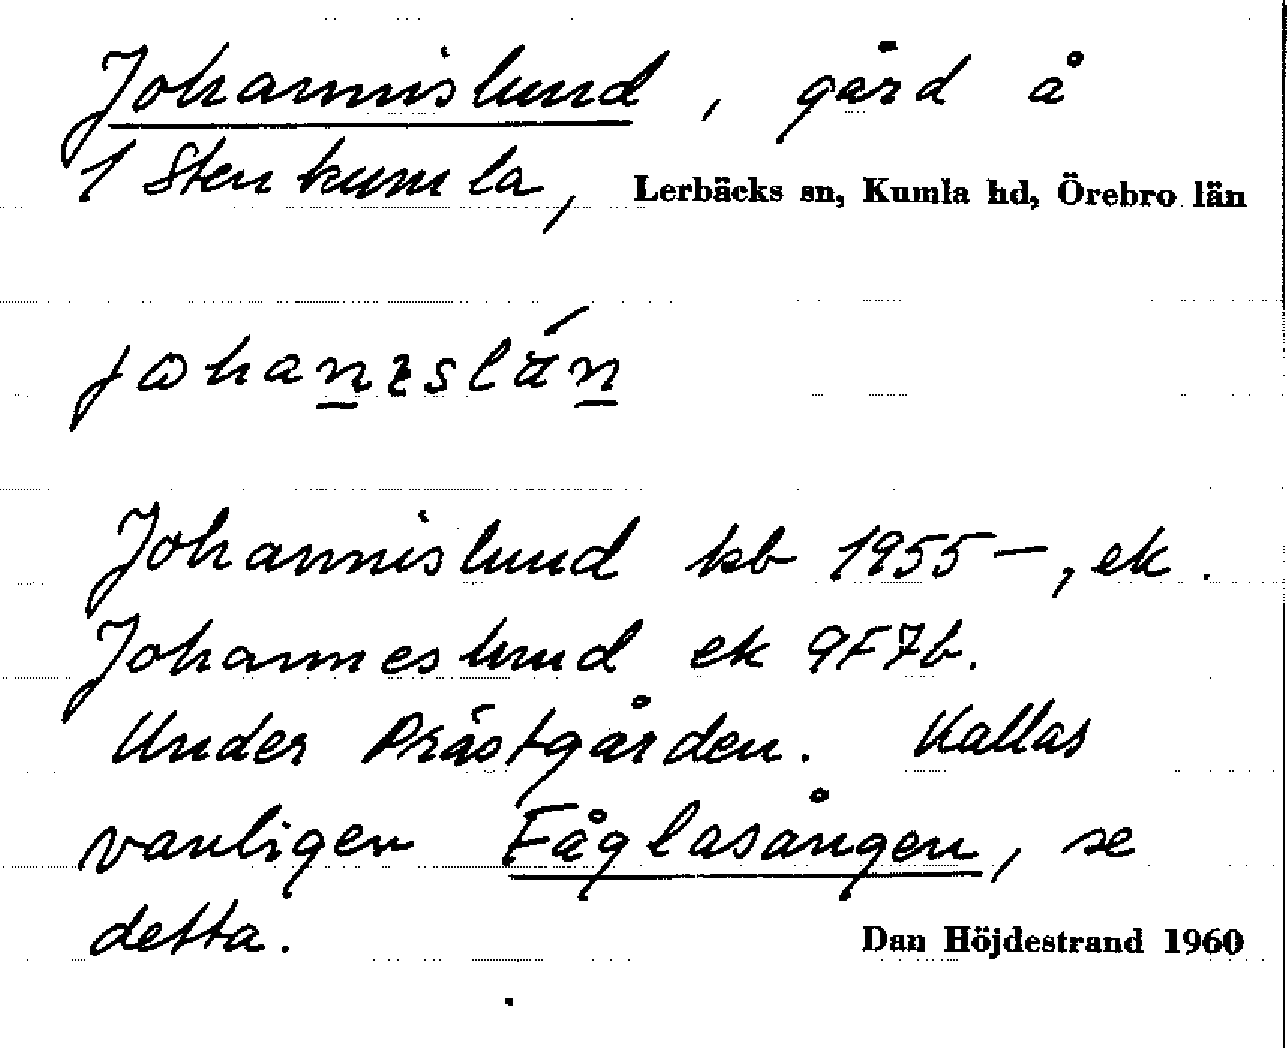 Johannislund, gård å
1 Stenkumla, Lerbäcks sn, Kumla hd, Örebro län
johanɪslán
Johannislund kb 1955–, ek.
Johanneslund ek 9F7b.
Under Prästgården. Kallas
vanligen Fåglasången, se
detta.
Dan Höjdestrand 1960